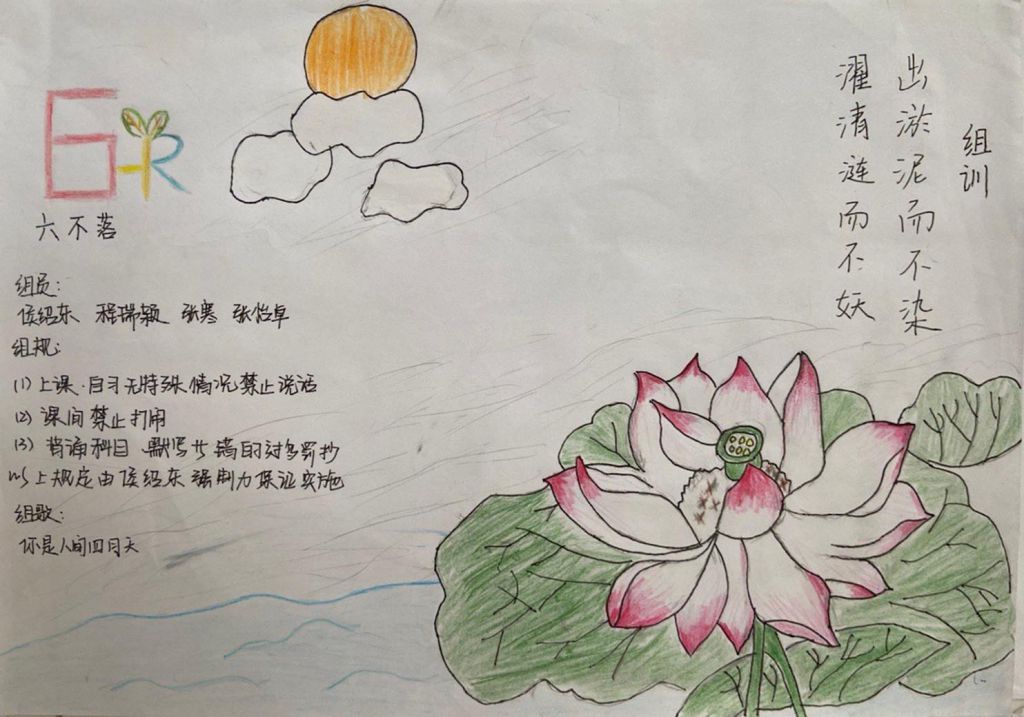 组训
出淤泥而不染
濯清涟而不妖
6
六不落
组员:
侯绍东 程瑞颖 张寒 张怡卓
组规:
(1) 上课.自习无特殊情况禁止说话
(2) 课间禁止打闹
(3) 背诵科目、默写
以上规定由侯绍东强制力保证实施
组歌:
你是人间四月天